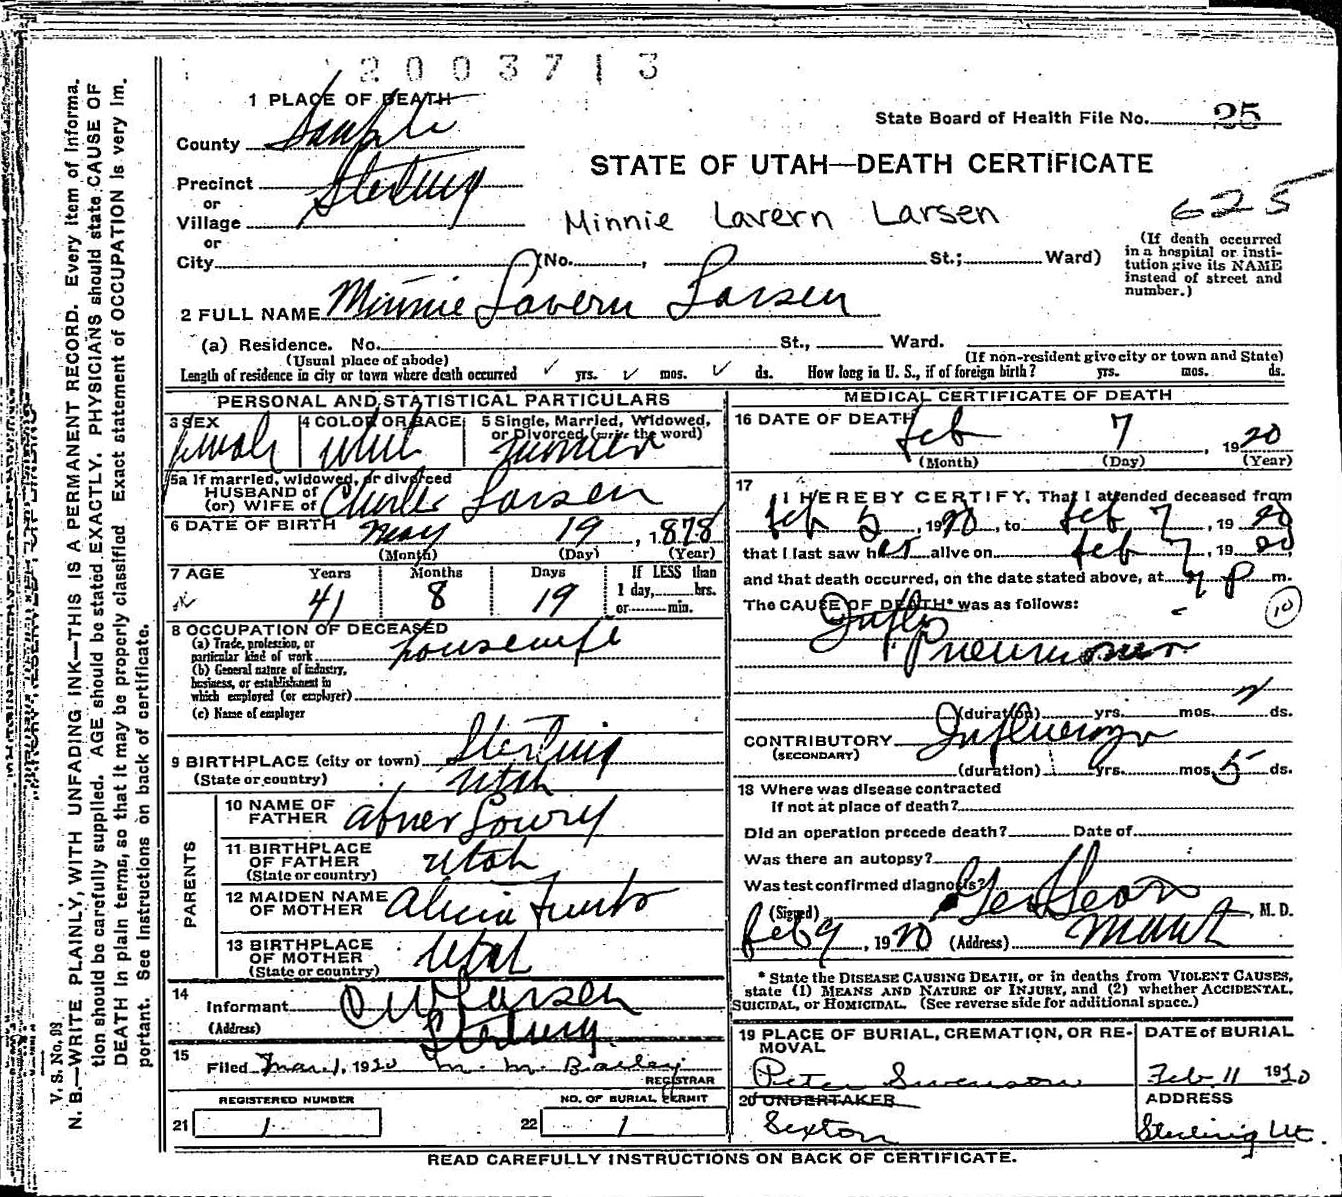 2003713
1 PLACE OF DEATH
State Board of Health File No. 25
County Sanpete
STATE OF UTAH—DEATH CERTIFICATE
Precinct Sterling
or
Village
Minnie Lavern Larsen
625
or
City (No. , St.; Ward)
(If death occurred
in a hospital or insti-
tution give its NAME
instead of street and
number.)
2 FULL NAME Minnie Lavern Larsen
(a) Residence. No. St., Ward.
(Usual place of abode) (If non-resident give city or town and State)
Length of residence in city or town where death occurred yrs. mos. ds. How long in U. S., if of foreign birth? yrs. mos. ds.
PERSONAL AND STATISTICAL PARTICULARS
3 SEX
female
4 COLOR OR RACE
white
5 Single, Married, Widowed,
or Divorced (write the word)
married
5a If married, widowed, or divorced
HUSBAND of
(or) WIFE of Charles Larsen
6 DATE OF BIRTH May 19, 1878
(Month) (Day) (Year)
7 AGE Years Months Days If LESS than
41 8 19 1 day, hrs.
or min.
8 OCCUPATION OF DECEASED
(a) Trade, profession, or
particular kind of work housewife
(b) General nature of industry,
business, or establishment in
which employed (or employer)
(c) Name of employer
9 BIRTHPLACE (city or town) Sterling
(State or country) Utah
PARENTS
10 NAME OF
FATHER Abner Lowry
11 BIRTHPLACE
OF FATHER Utah
(State or country)
12 MAIDEN NAME
OF MOTHER Alicia
13 BIRTHPLACE
OF MOTHER Utah
(State or country)
14
Informant C W Larsen
(Address) Sterling
15
Filed Mar 1, 1920 M. M. Bailey
REGISTRAR
REGISTERED NUMBER NO. OF BURIAL PERMIT
21 1 22 1
MEDICAL CERTIFICATE OF DEATH
16 DATE OF DEATH Feb 7, 1920
(Month) (Day) (Year)
17
I HEREBY CERTIFY, That I attended deceased from
Feb 5, 1920, to Feb 7, 1920
that I last saw her alive on Feb 7, 1920,
and that death occurred, on the date stated above, at P m.
The CAUSE OF DEATH* was as follows:
10
Pneumonia
(duration) yrs. mos. 2 ds.
CONTRIBUTORY Influenza
(SECONDARY)
(duration) yrs. mos. 5 ds.
18 Where was disease contracted
if not at place of death?
Did an operation precede death? Date of
Was there an autopsy?
Was test confirmed diagnosis?
(Signed) , M. D.
Feb 9, 1920 (Address) Manti
* State the DISEASE CAUSING DEATH, or in deaths from VIOLENT CAUSES,
state (1) MEANS AND NATURE OF INJURY, and (2) whether ACCIDENTAL,
SUICIDAL, or HOMICIDAL. (See reverse side for additional space.)
19 PLACE OF BURIAL, CREMATION, OR RE-
MOVAL
DATE of BURIAL
Peter Swenson Feb 11 1920
20 UNDERTAKER ADDRESS
Sexton Sterling Ut.
READ CAREFULLY INSTRUCTIONS ON BACK OF CERTIFICATE.
V. S. No. 98
N. B.—WRITE PLAINLY, WITH UNFADING INK—THIS IS A PERMANENT RECORD. Every item of informa-
tion should be carefully supplied. AGE should be stated EXACTLY. PHYSICIANS should state CAUSE OF
DEATH in plain terms, so that it may be properly classified. Exact statement of OCCUPATION is very im-
portant. See instructions on back of certificate.